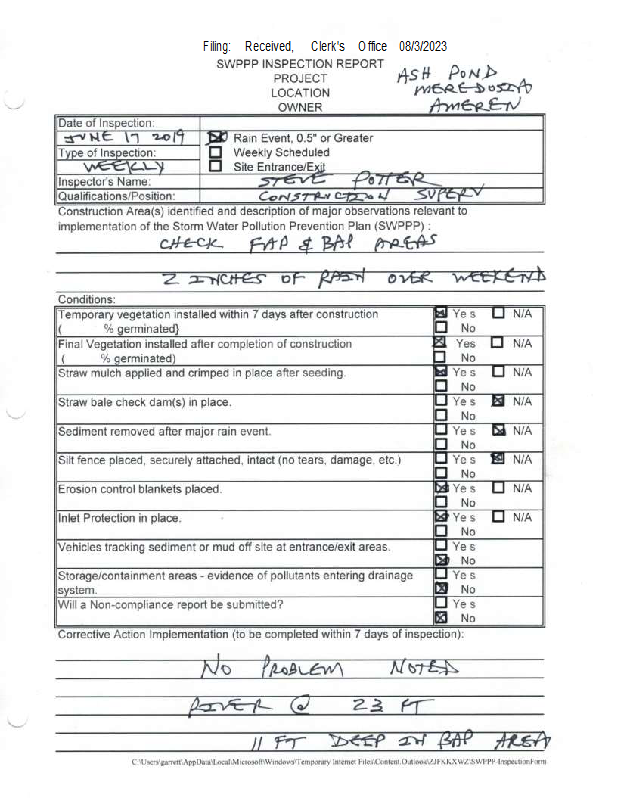 Filing: Received, Clerk's Office 08/3/2023
SWPPP INSPECTION REPORT
PROJECT ASH POND
LOCATION MEREDOSIA
OWNER AMEREN
Date of Inspection:
JUNE 17 2019 Rain Event, 0.5" or Greater
Type of Inspection: Weekly Scheduled
WEEKLY Site Entrance/Exit
Inspector's Name: STEVE POTTER
Qualifications/Position: CONSTRUCTION SUPERV
Construction Area(s) identified and description of major observations relevant to
implementation of the Storm Water Pollution Prevention Plan (SWPPP) :
CHECK FAP & BAP AREAS
2 INCHES OF RAIN OVER WEEKEND
Conditions:
Temporary vegetation installed within 7 days after construction Yes N/A
( % germinated) No
Final Vegetation installed after completion of construction Yes N/A
( % germinated) No
Straw mulch applied and crimped in place after seeding. Yes N/A
No
Straw bale check dam(s) in place. Yes N/A
No
Sediment removed after major rain event. Yes N/A
No
Silt fence placed, securely attached, intact (no tears, damage, etc.) Yes N/A
No
Erosion control blankets placed. Yes N/A
No
Inlet Protection in place. Yes N/A
No
Vehicles tracking sediment or mud off site at entrance/exit areas. Yes
No
Storage/containment areas - evidence of pollutants entering drainage Yes
system. No
Will a Non-compliance report be submitted? Yes
No
Corrective Action Implementation (to be completed within 7 days of inspection):
NO PROBLEM NOTED
RIVER @ 23 FT
11 FT DEEP IN BAP AREA
C:\Users\garrett\AppData\Local\Microsoft\Windows\Temporary Internet Files\Content.Outlook\ZJFKKXWZ\SWPPP-InspectionForm